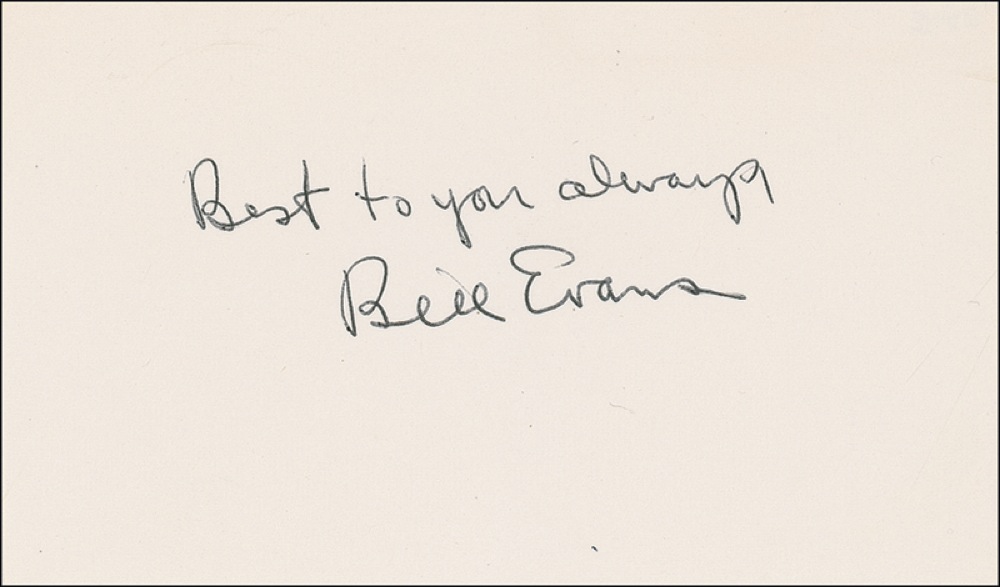 Best to you always
Bill Evans